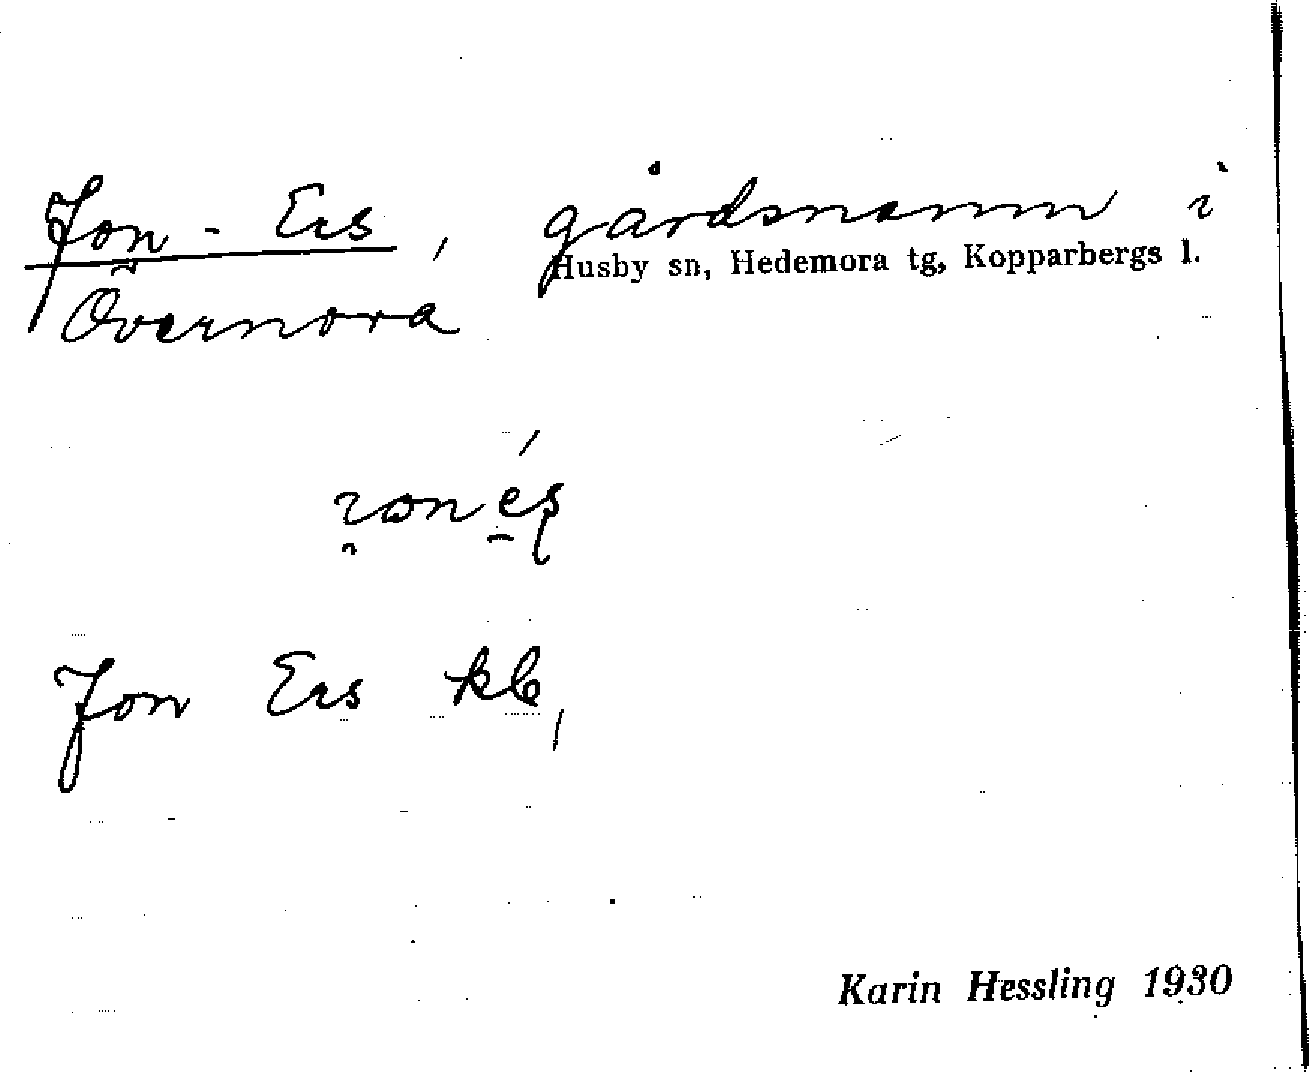 Jon-Ers, gårdsnamn i
Husby sn, Hedemora tg, Kopparbergs l.
Övernora
Jon Ers kb,
Karin Hessling 1930